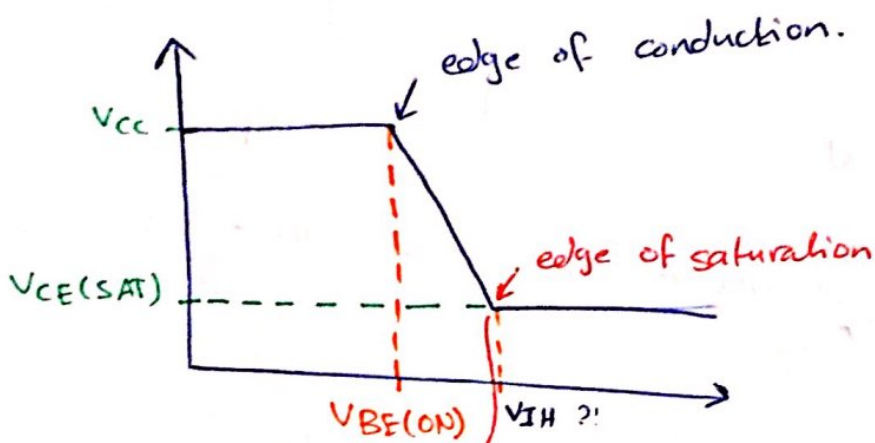 edge of conduction.
VCC
edge of saturation
VCE(SAT)
VBE(ON)
VIH ?!